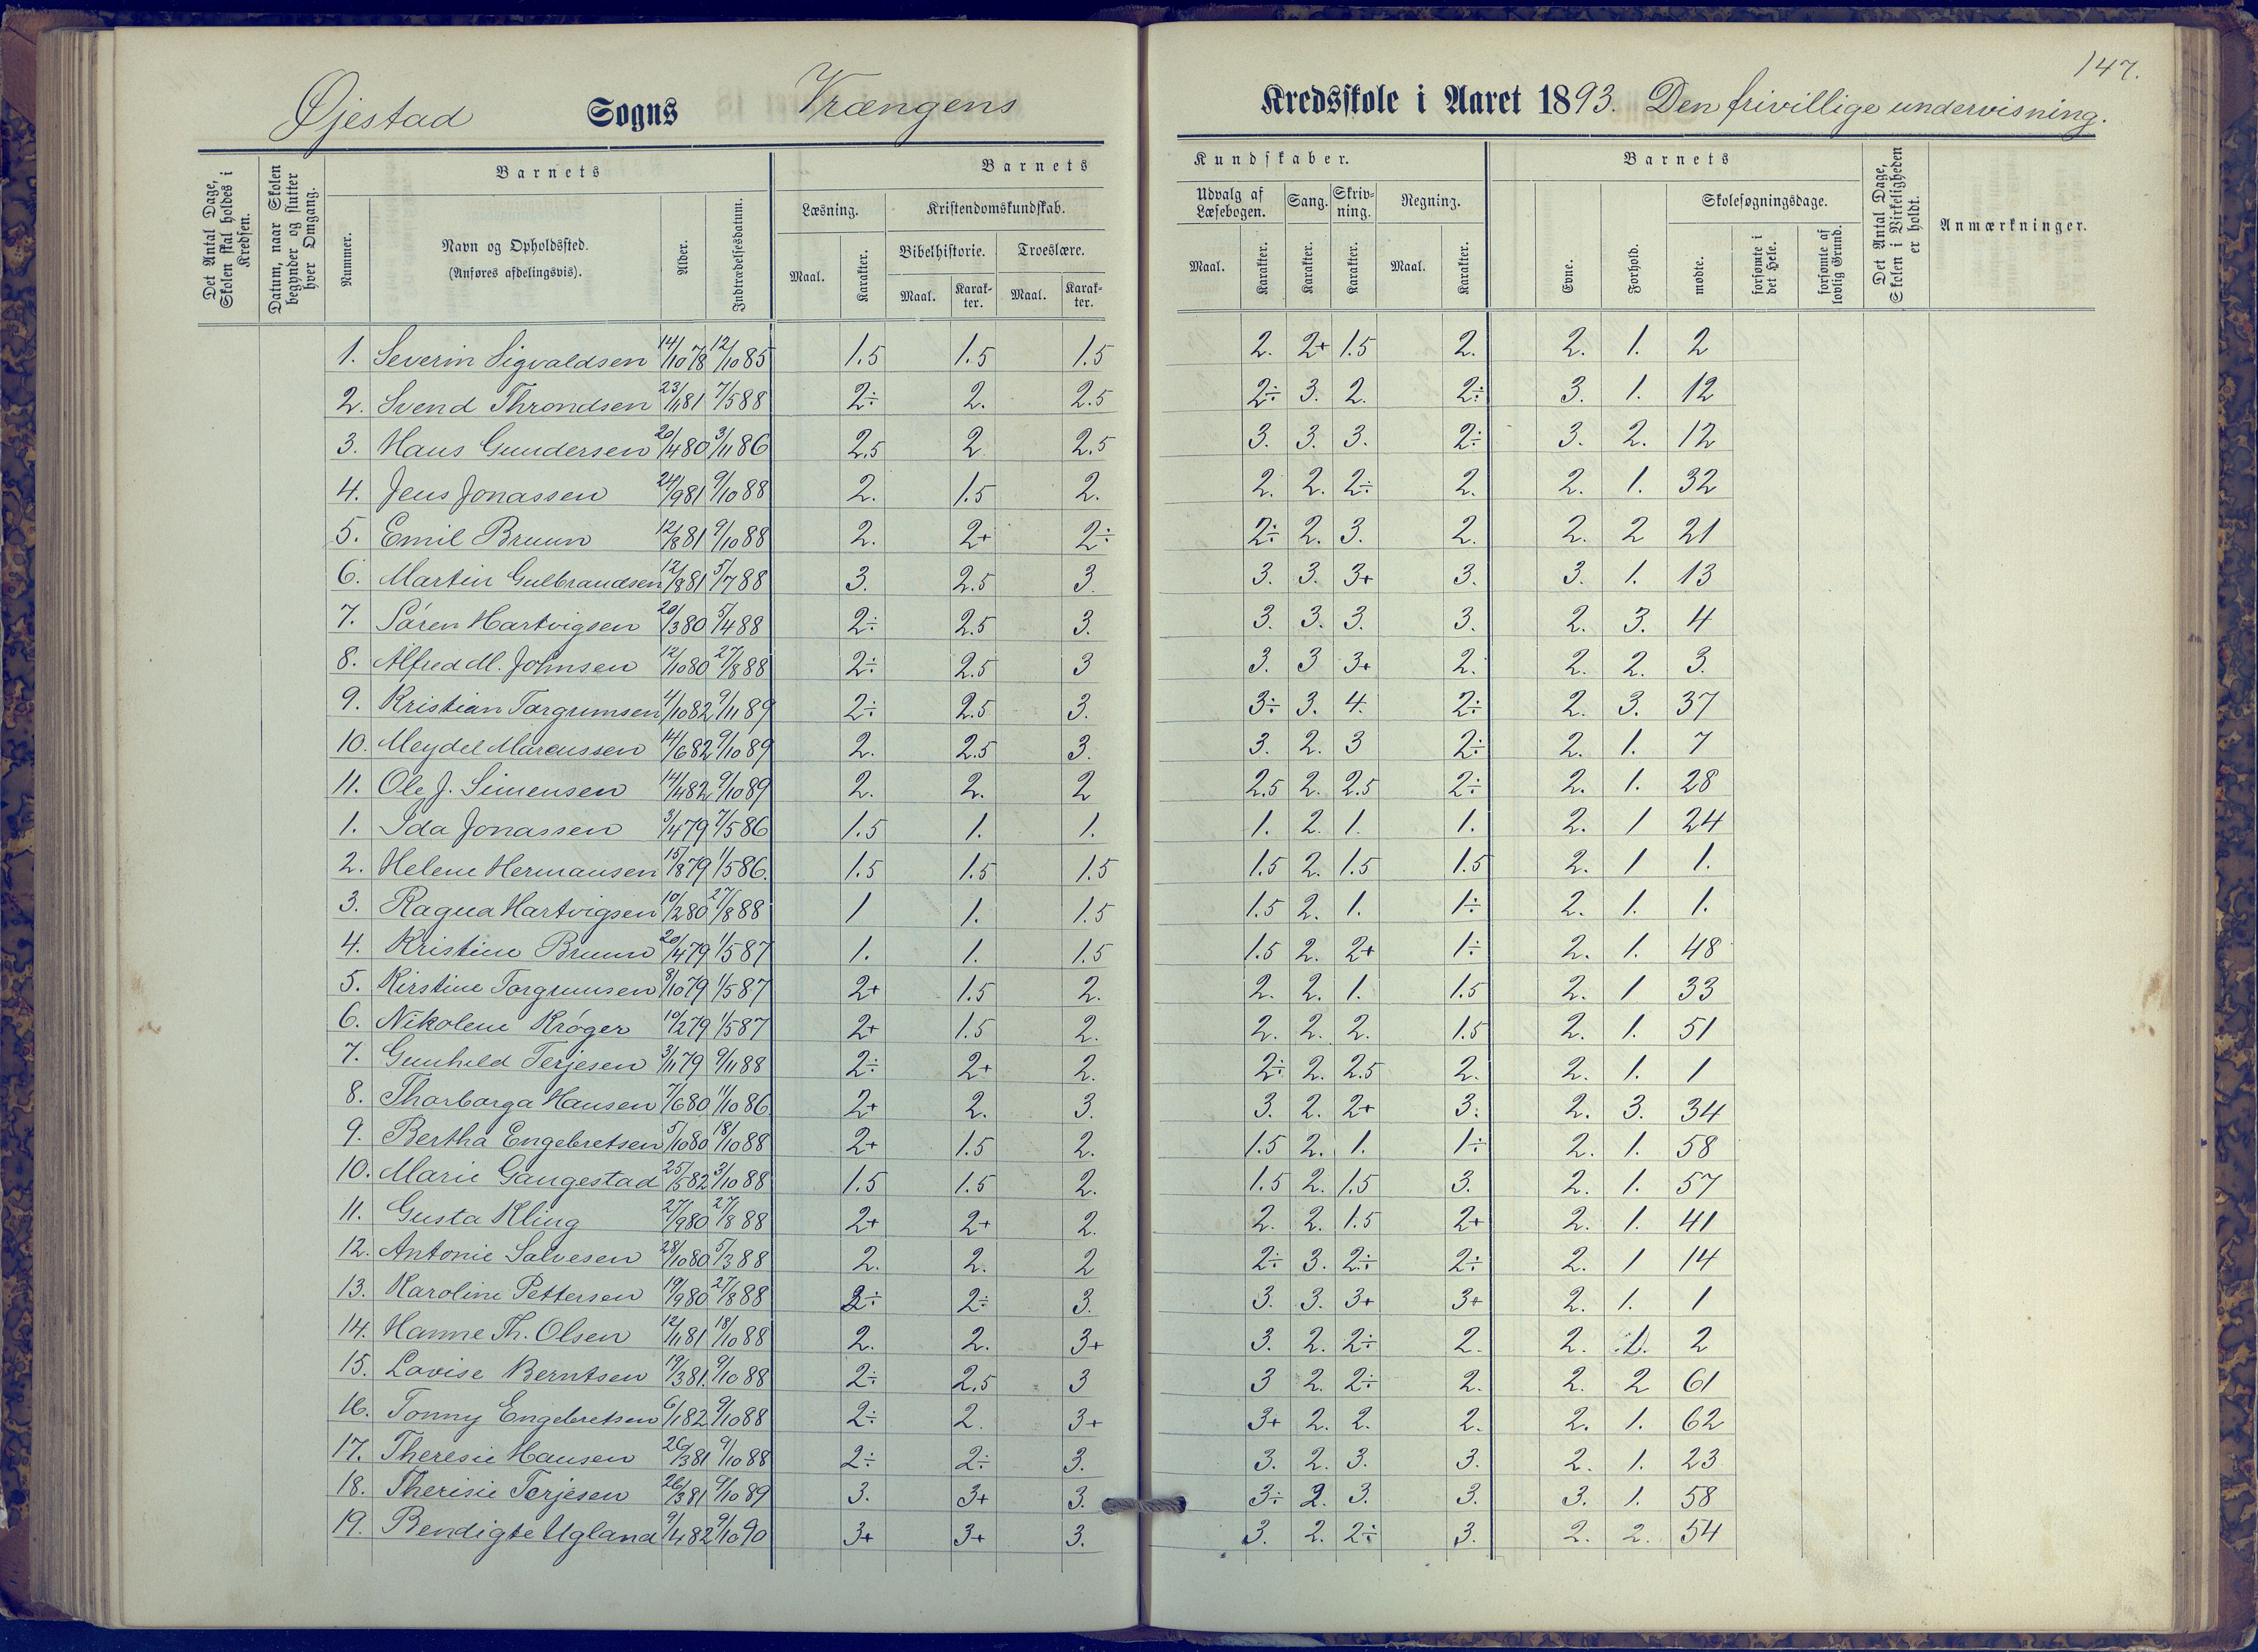 147.
Øjestad Sogns Vrængens Kredsskole i Aaret 1893. Den frivillige undervisning.
Det Antal Dage, Skolen skal holdes i Kredsen.
Datum, naar Skolen begynder og slutter hver Omgang.
Barnets
Nummer.
Navn og Opholdssted.
(Anføres afdelingsvis).
Alder.
Indtrædelsesdatum.
Barnets Kundskaber.
Læsning.
Maal. Karakter.
Kristendomskundskab.
Bibelhistorie. Troeslære.
Maal. Karakter. Maal. Karakter.
Udvalg af Læsebogen. Sang. Skrivning. Regning.
Maal. Karakter. Karakter. Karakter. Maal. Karakter.
Barnets
Evne. Forhold.
Skolesøgningsdage.
mødte. forsømte i det Hele. forsømte af lovlig Grund.
Det Antal Dage, Skolen i Virkeligheden er holdt.
Anmærkninger.
1. Severin Sigvaldsen 14/10 78 12/10 85 1.5 1.5 1.5 2. 2+ 1.5 2. 2. 1. 2
2. Svend Throndsen 23/11 81 7/5 88 2÷ 2. 2.5 2÷ 3. 2. 2÷ 3. 1. 12
3. Hans Gundersen 20/4 80 3/11 86 2.5 2 2.5 3. 3. 3. 2÷ 3. 2. 12
4. Jens Jonassen 24/9 81 9/10 88 2. 1.5 2. 2. 2. 2÷ 2. 2. 1. 32
5. Emil Bruun 12/8 81 9/10 88 2. 2+ 2÷ 2÷ 2. 3. 2. 2. 2 21
6. Martin Gulbrandsen 12/8 81 5/7 88 3. 2.5 3. 3. 3. 3+ 3. 3. 1. 13
7. Søren Hartvigsen 20/3 80 5/4 88 2÷ 2.5 3. 3. 3. 3. 3. 2. 3. 4
8. Alfred M. Johnsen 12/10 80 27/8 88 2÷ 2.5 3 3. 3 3+ 2. 2. 2. 3.
9. Kristian Torgrumsen 4/10 82 9/11 89 2÷ 2.5 3. 3÷ 3. 4. 2÷ 2. 3. 37
10. Meydel Marcussen 14/6 82 9/10 89 2. 2.5 3. 3. 2. 3 2÷ 2. 1. 7
11. Ole J. Simensen 14/4 82 9/10 89 2. 2. 2 2.5 2. 2.5 2÷ 2. 1. 28
1. Ida Jonassen 3/4 79 7/5 86 1.5 1. 1. 1. 2. 1. 1. 2. 1 24
2. Helene Hermansen 15/8 79 1/5 86. 1.5 1.5 1.5 1.5 2. 1.5 1.5 2. 1 1.
3. Ragna Hartvigsen 10/2 80 27/8 88 1 1. 1.5 1.5 2. 1. 1÷ 2. 1. 1.
4. Kristine Bruun 20/4 79 1/5 87 1. 1. 1.5 1.5 2. 2+ 1÷ 2. 1. 48
5. Kirstine Torgrumsen 8/10 79 1/5 87 2+ 1.5 2. 2. 2. 1. 1.5 2. 1 33
6. Nikolene Krøger 10/2 79 1/5 87 2+ 1.5 2. 2. 2. 2. 1.5 2. 1. 51
7. Gunhild Terjesen 3/11 79 9/11 88 2÷ 2+ 2. 2÷ 2. 2.5 2. 2. 1. 1
8. Thorborga Hansen 7/6 80 11/10 86 2+ 2. 3. 3. 2. 2+ 3. 2. 3. 34
9. Bertha Engebretsen 5/10 80 18/10 88 2+ 1.5 2. 1.5 2. 1. 1÷ 2. 1. 58
10. Marie Gangestad 25/5 82 3/10 88 1.5 1.5 2. 1.5 2. 1.5 3. 2. 1. 57
11. Gusta Kling 27/9 80 27/8 88 2+ 2+ 2. 2. 2. 1.5 2+ 2. 1. 41
12. Antonie Salvesen 28/10 80 5/3 88 2. 2. 2 2÷ 3. 2÷ 2÷ 2. 1 14
13. Karoline Pettersen 19/9 80 27/8 88 2÷ 2÷ 3. 3. 3. 3+ 3+ 2. 1. 1
14. Hanne Th. Olsen 12/11 81 18/10 88 2. 2. 3+ 3. 2. 2÷ 2. 2. 1. 2
15. Lovise Berntsen 19/3 81. 9/10 88 2÷ 2.5 3 3 2. 2÷ 2. 2. 2 61
16. Tonny Engebretsen 6/1 82 9/10 88 2÷ 2. 3+ 3+ 2. 2. 2. 2. 1. 62
17. Theresie Hansen 26/3 81 9/10 88 2÷ 2÷ 3. 3. 2. 3. 3. 2. 1. 23
18. Therisie Terjesen 26/3 81 9/10 89 3. 3+ 3. 3÷ 2. 3. 3. 3. 1. 58
19. Bendigte Ugland 9/4 82 9/10 90 3+ 3+ 3. 3. 2. 2÷ 3. 2. 2. 54